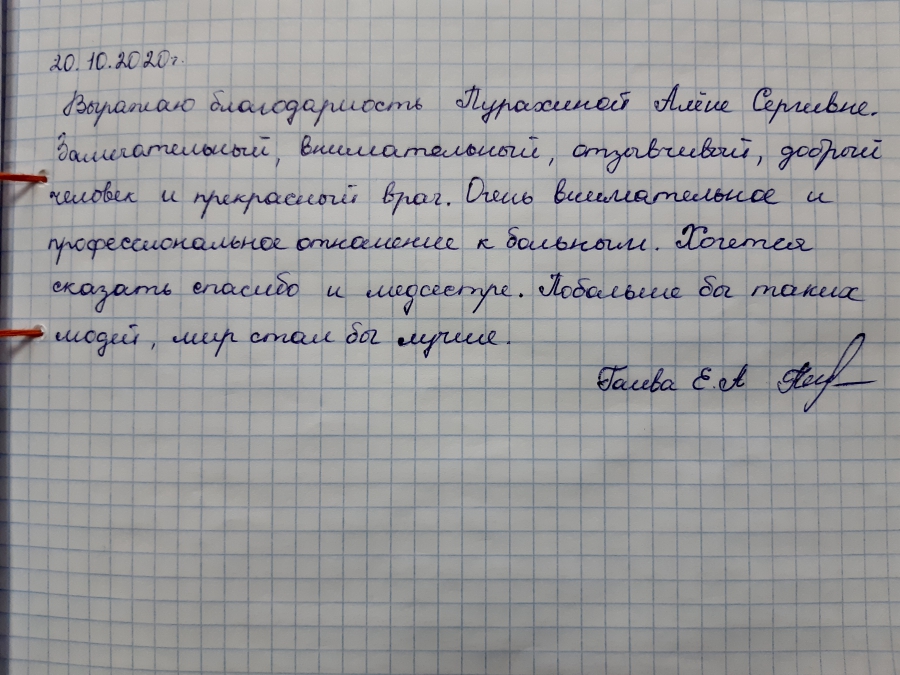 20.10.2020г.
Выражаю благодарность Пурахиной Алёне Сергеевне.
Замечательный, внимательный, отзывчивый, добрый
человек и прекрасный врач. Очень внимательное и
профессиональное отношение к больным. Хочется
сказать спасибо и медсестре. Побольше бы таких
людей, мир стал бы лучше.
Е.А